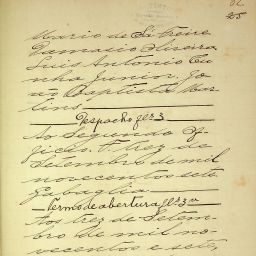 25
Mario de Siqueira
Damasio Oliveira
Luis Antonio Cu
nha Junior. Jo
ão Baptista Mar
tins
Despacho fls 3
Ao Segundo Of
ficio. Trez de
Setembro de mil
novecentos e sete
Gabaglia
Termo de abertura fls 3 v
Aos trez de Setem
bro de mil no
vecentos e sete,